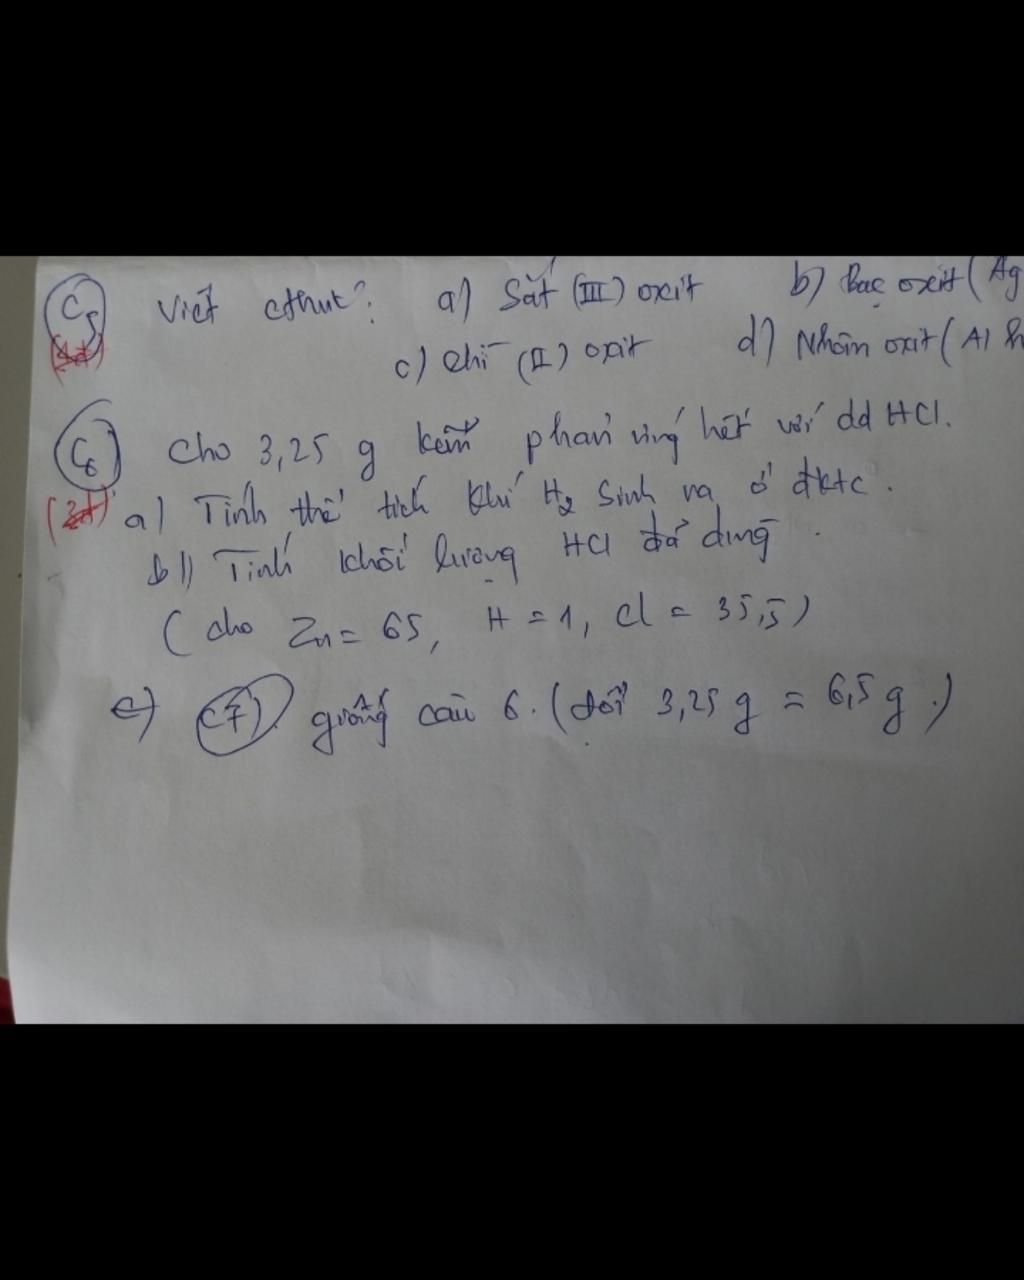 C5 Viết cthuc? a) Sắt (III) oxit b) Bạc oxit (Ag
(4đ) c) Chì (II) oxit d) Nhôm oxit (Al h
C6 Cho 3,25 g kẽm phản ứng hết với dd HCl.
a) Tính thể tích khí H2 sinh ra ở đktc.
b) Tính khối lượng HCl đã dùng.
(cho Zn = 65, H = 1, Cl = 35,5)
C7) giống câu 6. (đổi 3,25 g = 6,5 g.)